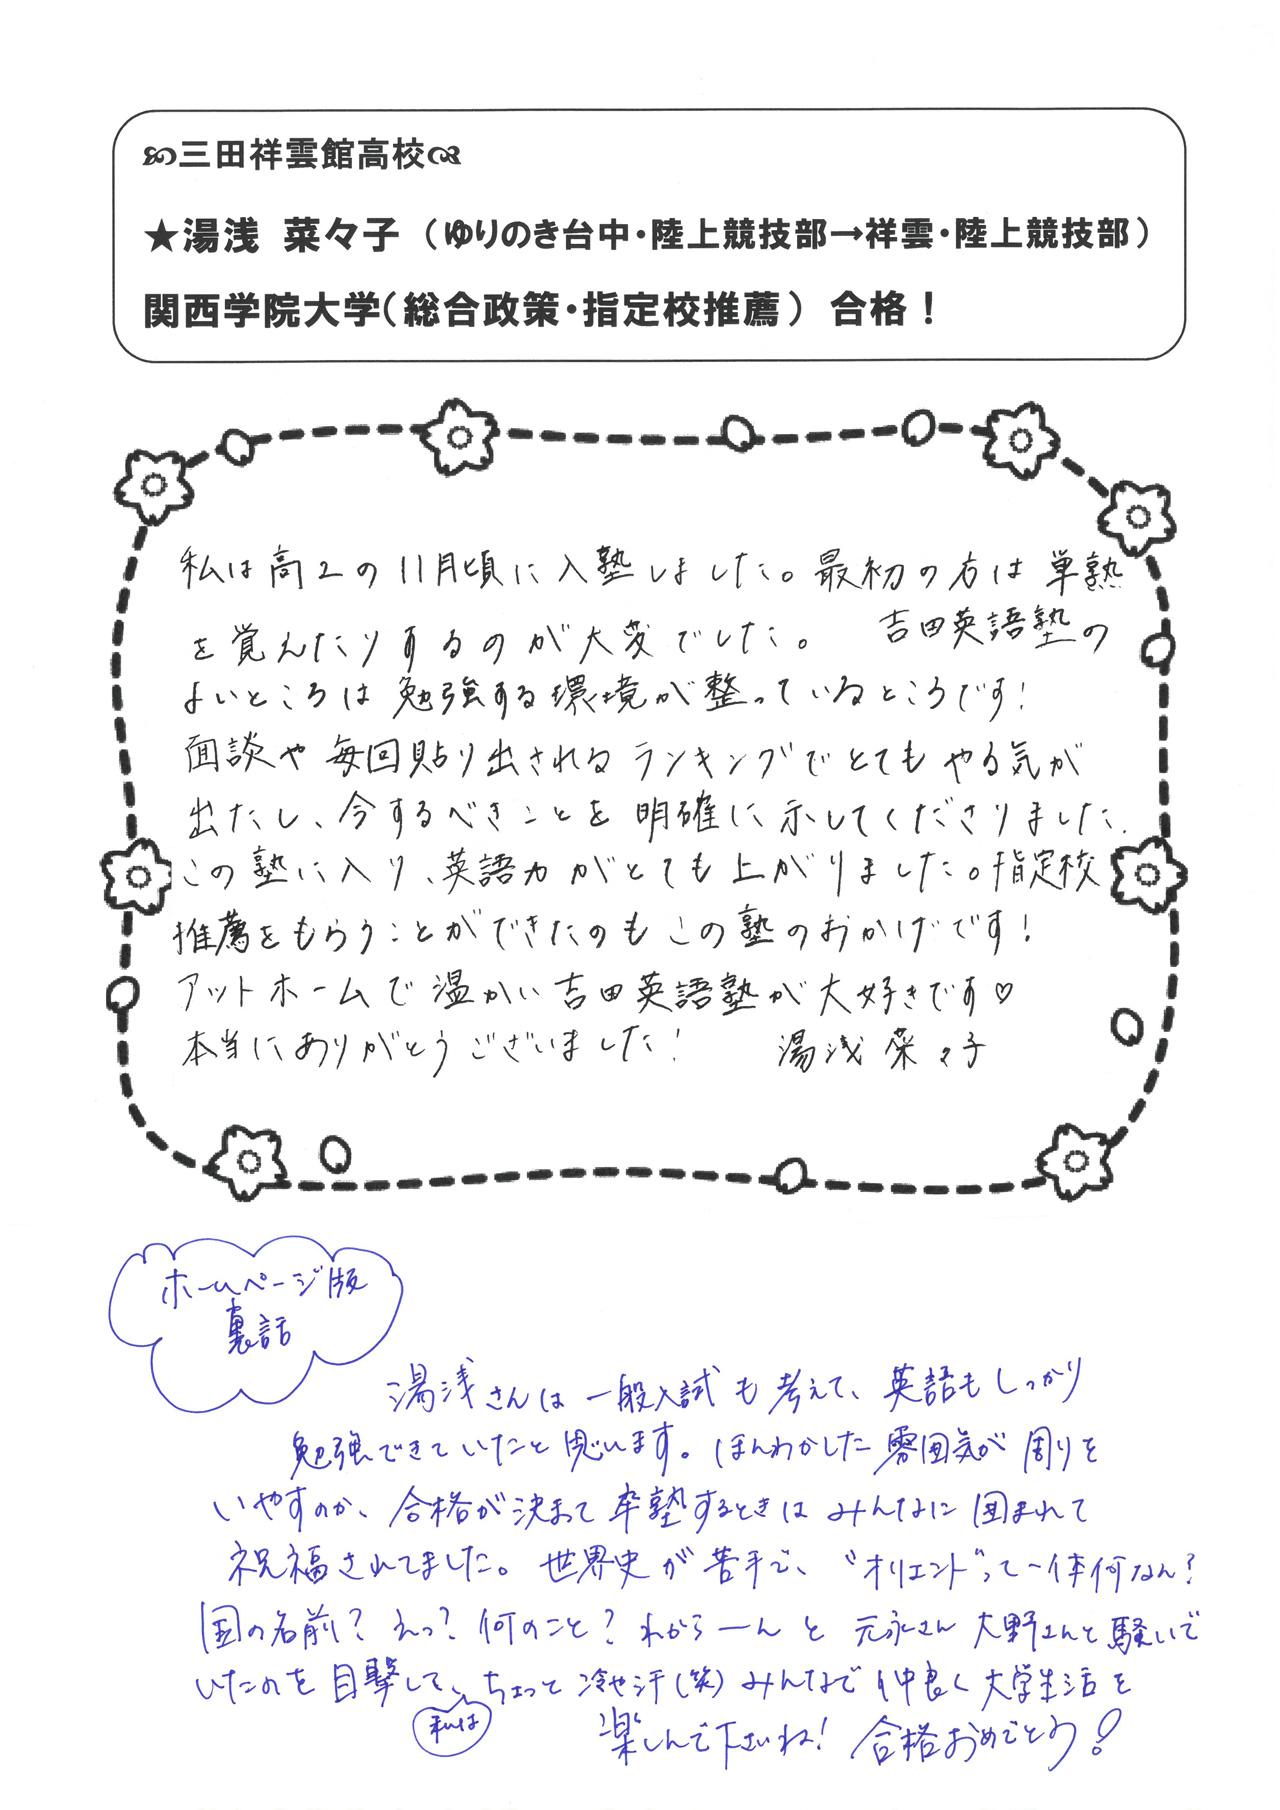 三田祥雲館高校
★湯浅 菜々子 (ゆりのき台中・陸上競技部→祥雲・陸上競技部)
関西学院大学(総合政策・指定校推薦) 合格!
私は高2の11月頃に入塾しました。最初の方は単熟
を覚えたりするのが大変でした。 吉田英語塾の
よいところは勉強する環境が整っているところです!
面談や毎回貼り出されるランキングでとてもやる気が
出たし、今するべきことを明確に示してくださりました。
この塾に入り、英語力がとても上がりました。指定校
推薦をもらうことができたのもこの塾のおかげです!
アットホームで温かい吉田英語塾が大好きです♡
本当にありがとうございました! 湯浅 菜々子
ホームページ版
裏話
湯浅さんは一般入試も考えて、英語もしっかり
勉強できていたと思います。ほんわかした雰囲気が周りを
いやすのか、合格が決まって卒塾するときはみんなに囲まれて
祝福されてました。世界史が苦手で、“オリエント”って一体何なん?
国の名前?えっ?何のこと?わからーんと元永さん大野さんと騒いで
いたのを目撃して、私はちょっと冷や汗(笑)みんなで仲良く大学生活を
楽しんで下さいね!合格おめでとう!